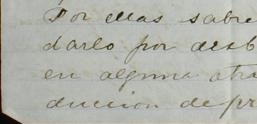 Por ellas sabre
darlo por desb
en alguna otra
duccion de pr